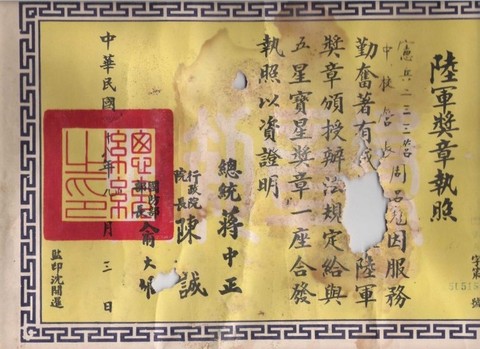 陸軍獎章執照
字第
號
憲兵二三三營
中校營長周因服務
勤奮著有成 陸軍
獎章頒授辦法規定給與
五星寶星獎章一座合發
執照以資證明
總統蔣中正
行政院院長陳誠
國防部部長俞大
中華民國 八年 月三日
監印沈開運
總統之印